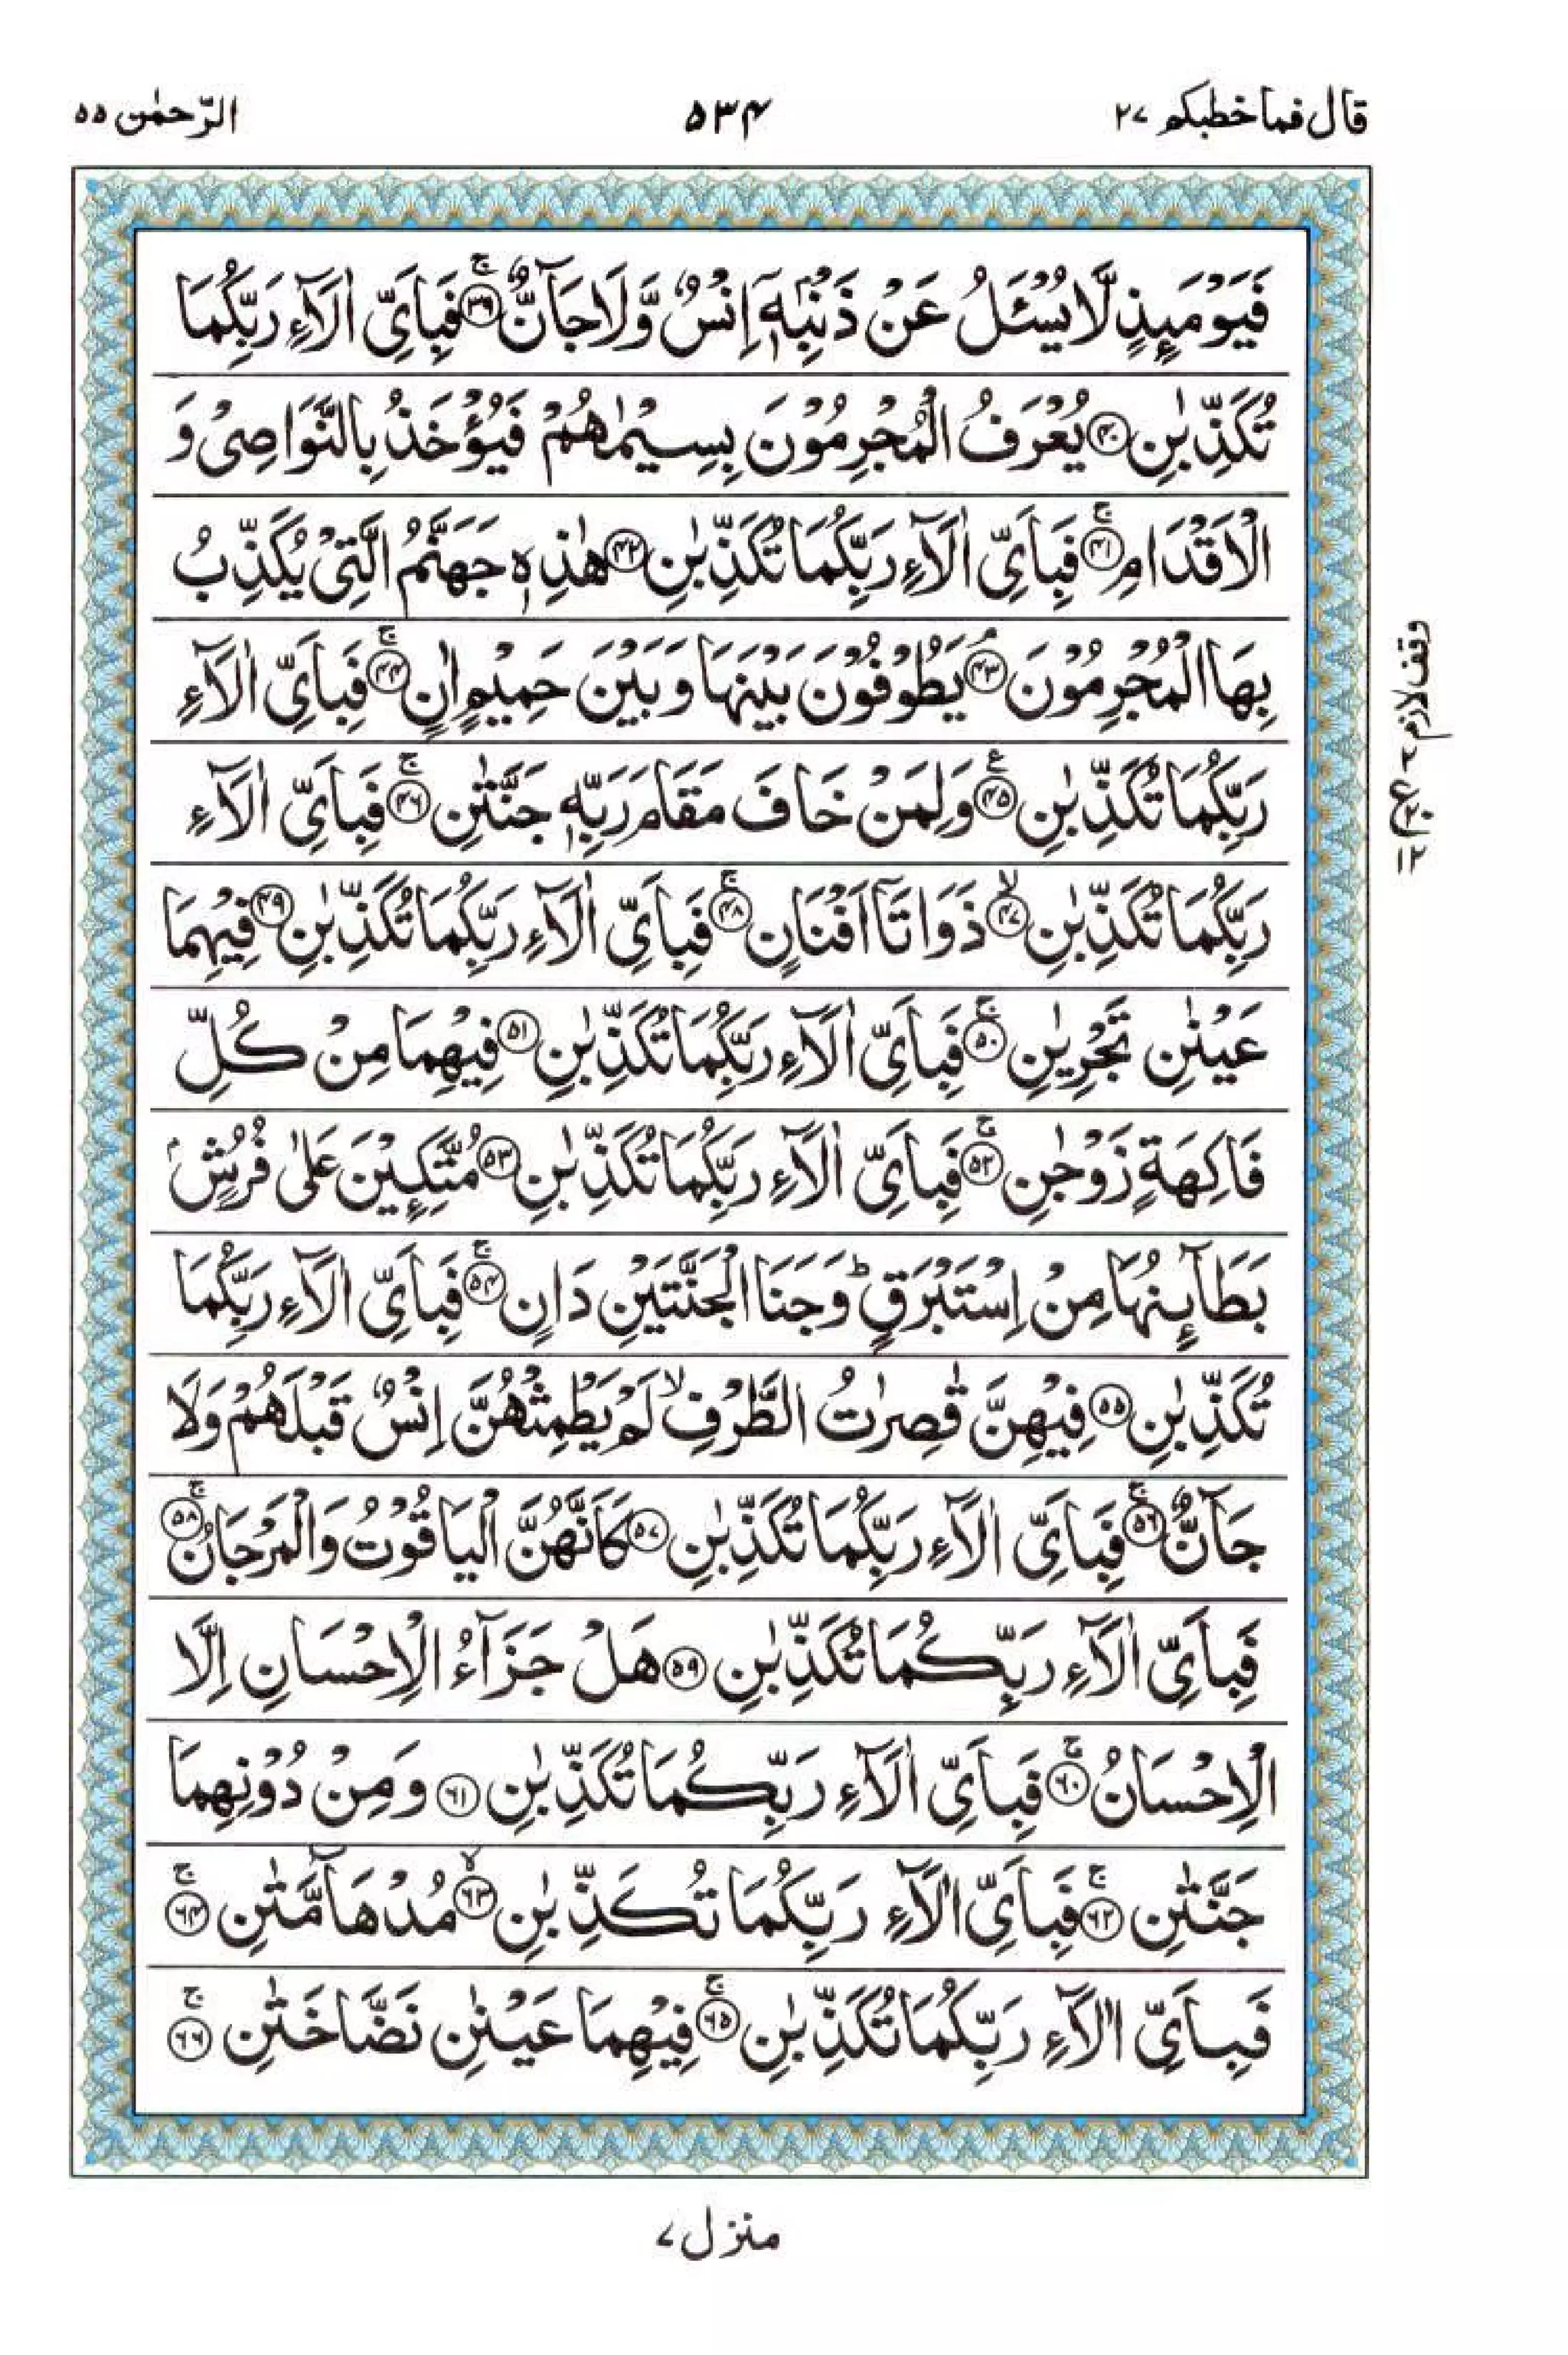 قال فما خطبكم ۲۷
۵۳۴
الرّحمٰن ۵۵
فَيَوْمَىِٕذٍ لَّا يُسْـَٔلُ عَنْ ذَنْۢبِهٖۤ اِنْسٌ وَّلَا جَآنٌّۚ ﴿۳۹﴾ فَبِاَىِّ اٰلَآءِ رَبِّكُمَا
تُكَذِّبٰنِ ﴿۴۰﴾ يُعْرَفُ الْمُجْرِمُوْنَ بِسِيْمٰهُمْ فَيُؤْخَذُ بِالنَّوَاصِىْ وَ
الْاَقْدَامِۚ ﴿۴۱﴾ فَبِاَىِّ اٰلَآءِ رَبِّكُمَا تُكَذِّبٰنِ ﴿۴۲﴾ هٰذِهٖ جَهَنَّمُ الَّتِىْ يُكَذِّبُ
بِهَا الْمُجْرِمُوْنَۘ ﴿۴۳﴾ يَطُوْفُوْنَ بَيْنَهَا وَبَيْنَ حَمِيْمٍ اٰنٍۚ ﴿۴۴﴾ فَبِاَىِّ اٰلَآءِ
رَبِّكُمَا تُكَذِّبٰنِ ﴿۴۵﴾ع وَلِمَنْ خَافَ مَقَامَ رَبِّهٖ جَنَّتٰنِۚ ﴿۴۶﴾ فَبِاَىِّ اٰلَآءِ
رَبِّكُمَا تُكَذِّبٰنِۙ ﴿۴۷﴾ ذَوَاتَاۤ اَفْنَانٍۚ ﴿۴۸﴾ فَبِاَىِّ اٰلَآءِ رَبِّكُمَا تُكَذِّبٰنِ ﴿۴۹﴾ فِيْهِمَا
عَيْنٰنِ تَجْرِيٰنِۚ ﴿۵۰﴾ فَبِاَىِّ اٰلَآءِ رَبِّكُمَا تُكَذِّبٰنِ ﴿۵۱﴾ فِيْهِمَا مِنْ كُلِّ
فَاكِهَةٍ زَوْجٰنِۚ ﴿۵۲﴾ فَبِاَىِّ اٰلَآءِ رَبِّكُمَا تُكَذِّبٰنِ ﴿۵۳﴾ مُتَّكِـِٕيْنَ عَلٰى فُرُشٍۭ
بَطَآىِٕنُهَا مِنْ اِسْتَبْرَقٍؕ وَجَنَا الْجَنَّتَيْنِ دَانٍۚ ﴿۵۴﴾ فَبِاَىِّ اٰلَآءِ رَبِّكُمَا
تُكَذِّبٰنِ ﴿۵۵﴾ فِيْهِنَّ قٰصِرٰتُ الطَّرْفِۙ لَمْ يَطْمِثْهُنَّ اِنْسٌ قَبْلَهُمْ وَلَا
جَآنٌّۚ ﴿۵۶﴾ فَبِاَىِّ اٰلَآءِ رَبِّكُمَا تُكَذِّبٰنِ ﴿۵۷﴾ كَاَنَّهُنَّ الْيَاقُوْتُ وَالْمَرْجَانُۚ ﴿۵۸﴾
فَبِاَىِّ اٰلَآءِ رَبِّكُمَا تُكَذِّبٰنِ ﴿۵۹﴾ هَلْ جَزَآءُ الْاِحْسَانِ اِلَّا
الْاِحْسَانُۚ ﴿۶۰﴾ فَبِاَىِّ اٰلَآءِ رَبِّكُمَا تُكَذِّبٰنِ ﴿۶۱﴾ وَمِنْ دُوْنِهِمَا
جَنَّتٰنِۚ ﴿۶۲﴾ فَبِاَىِّ اٰلَآءِ رَبِّكُمَا تُكَذِّبٰنِۙ ﴿۶۳﴾ مُدْهَآمَّتٰنِۚ ﴿۶۴﴾
فَبِاَىِّ اٰلَآءِ رَبِّكُمَا تُكَذِّبٰنِۚ ﴿۶۵﴾ فِيْهِمَا عَيْنٰنِ نَضَّاخَتٰنِۚ ﴿۶۶﴾
وقف لازم
ع
۱۲
منزل ۷